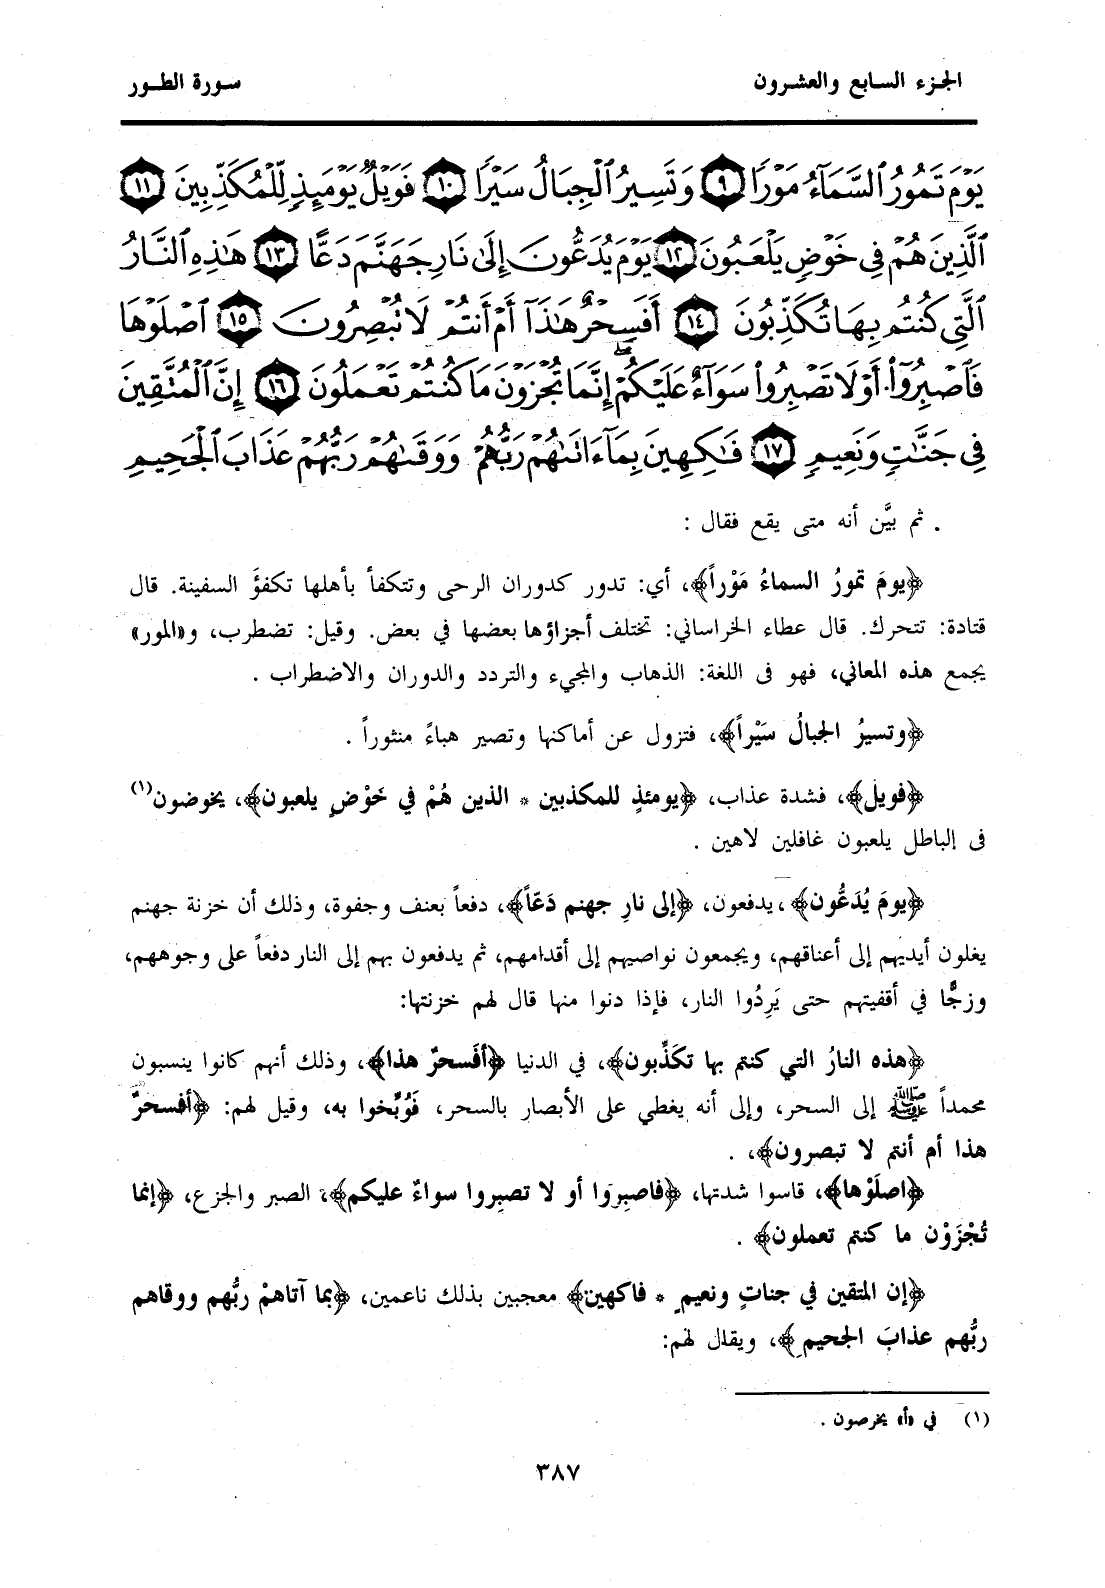 الجزء السابع والعشرون
سورة الطور
يَوْمَ تَمُورُ ٱلسَّمَآءُ مَوْرًا ٩ وَتَسِيرُ ٱلْجِبَالُ سَيْرًا ١٠ فَوَيْلٌ يَوْمَئِذٍ لِّلْمُكَذِّبِينَ ١١
ٱلَّذِينَ هُمْ فِى خَوْضٍ يَلْعَبُونَ ١٢ يَوْمَ يُدَعُّونَ إِلَىٰ نَارِ جَهَنَّمَ دَعًّا ١٣ هَٰذِهِ ٱلنَّارُ
ٱلَّتِى كُنتُم بِهَا تُكَذِّبُونَ ١٤ أَفَسِحْرٌ هَٰذَآ أَمْ أَنتُمْ لَا تُبْصِرُونَ ١٥ ٱصْلَوْهَا
فَٱصْبِرُوٓا۟ أَوْ لَا تَصْبِرُوا۟ سَوَآءٌ عَلَيْكُمْ ۖ إِنَّمَا تُجْزَوْنَ مَا كُنتُمْ تَعْمَلُونَ ١٦ إِنَّ ٱلْمُتَّقِينَ
فِى جَنَّٰتٍ وَنَعِيمٍ ١٧ فَٰكِهِينَ بِمَآ ءَاتَىٰهُمْ رَبُّهُمْ وَوَقَىٰهُمْ رَبُّهُمْ عَذَابَ ٱلْجَحِيمِ
. ثم بيَّن أنه متى يقع فقال :
﴿يومَ تمورُ السماءُ مَوْراً﴾، أي: تدور كدوران الرحى وتتكفأ بأهلها تكفؤَ السفينة. قال
قتادة: تتحرك. قال عطاء الخراساني: تختلف أجزاؤها بعضها في بعض. وقيل: تضطرب، و«المور»
يجمع هذه المعاني، فهو فى اللغة: الذهاب والمجيء والتردد والدوران والاضطراب .
﴿وتسيرُ الجبالُ سَيْراً﴾، فتزول عن أماكنها وتصير هباءً منثوراً .
﴿فويل﴾، فشدة عذاب، ﴿يومئذٍ للمكذبين * الذين هُمْ في خَوْضٍ يلعبون﴾، يخوضون(١)
فى الباطل يلعبون غافلين لاهين .
﴿يومَ يُدَعُّون﴾، يدفعون، ﴿إلى نارِ جهنم دَعّاً﴾، دفعاً بعنف وجفوة، وذلك أن خزنة جهنم
يغلون أيديهم إلى أعناقهم، ويجمعون نواصيهم إلى أقدامهم، ثم يدفعون بهم إلى النار دفعاً على وجوههم،
وزجًّا في أقفيتهم حتى يَرِدُوا النار، فإذا دنوا منها قال لهم خزنتها:
﴿هذه النارُ التي كنتم بها تكَذِّبون﴾، في الدنيا ﴿أفَسحرٌ هذا﴾، وذلك أنهم كانوا ينسبون
محمداً ﷺ إلى السحر، وإلى أنه يغطي على الأبصار بالسحر، فَوُبِّخوا به، وقيل لهم: ﴿أفسحرٌ
هذا أم أنتم لا تبصرون﴾، .
﴿اصلَوْها﴾، قاسوا شدتها، ﴿فاصبِرَوا أو لا تصبِروا سواءٌ عليكم﴾، الصبر والجزع، ﴿إنما
تُجْزَوْن ما كنتم تعملون﴾ .
﴿إن المتقين في جناتٍ ونعيمٍ * فاكهين﴾ معجبين بذلك ناعمين، ﴿بما آتاهمْ ربُّهم ووقاهم
ربُّهم عذابَ الجحيم﴾، ويقال لهم:
(١) في «أ» يخرصون .
٣٨٧